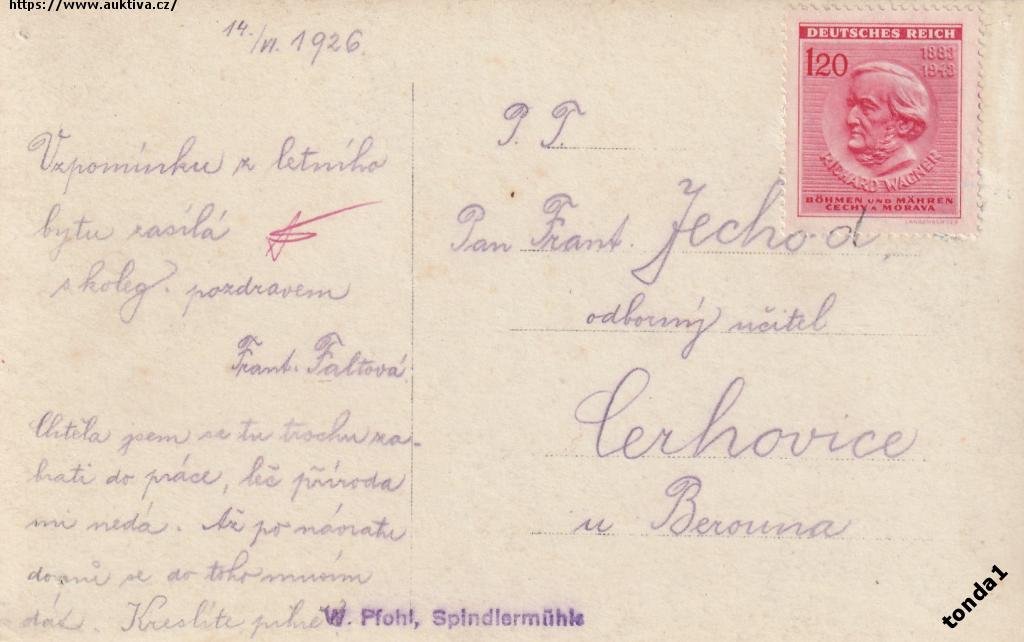 https://www.auktiva.cz/
14./VI. 1926.
Vzpomínku z letního
bytu zasílá
s koleg. pozdravem
Frant. Faltová.
Chtěla jsem se tu trochu za-
brati do práce, leč příroda
mi nedá. Až po návratu
domů se do toho musím
dát. Kreslíte pilně?
W. Pfohl, Spindlermühle
P. T.
Pan Frant. Jechod,
odborný učitel
Cerhovice
u Berouna
DEUTSCHES REICH
120
1883
1943
RICHARD WAGNER
BÖHMEN UND MÄHREN
ČECHY A MORAVA
tonda1